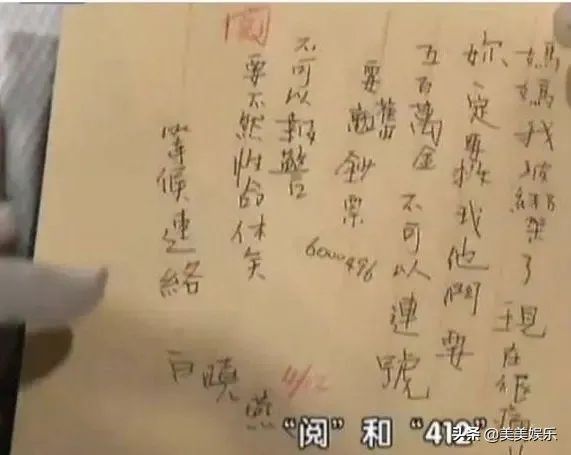 媽媽我被綁架了現在很痛
妳一定要救我他們要
五百萬金 不可以連號
要舊鈔票
6000496
不可以報警
要不然性命休矣
等候連絡
白曉燕
閱
4/12
“阅”和“412”
头条 @美美娱乐